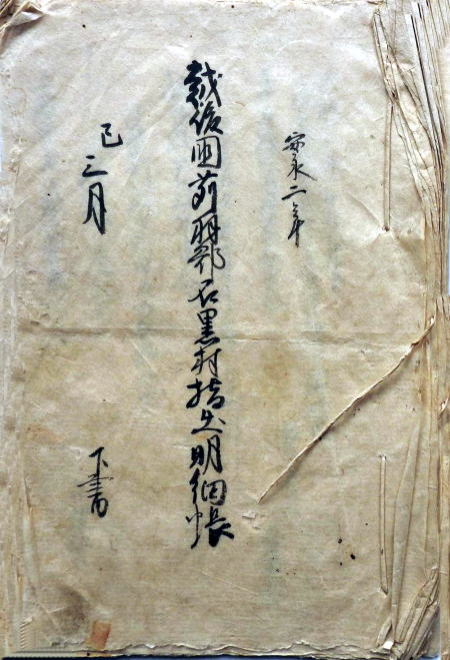 安永二年
越後國苅羽郡石黒村指出明細帳
巳三月
下書